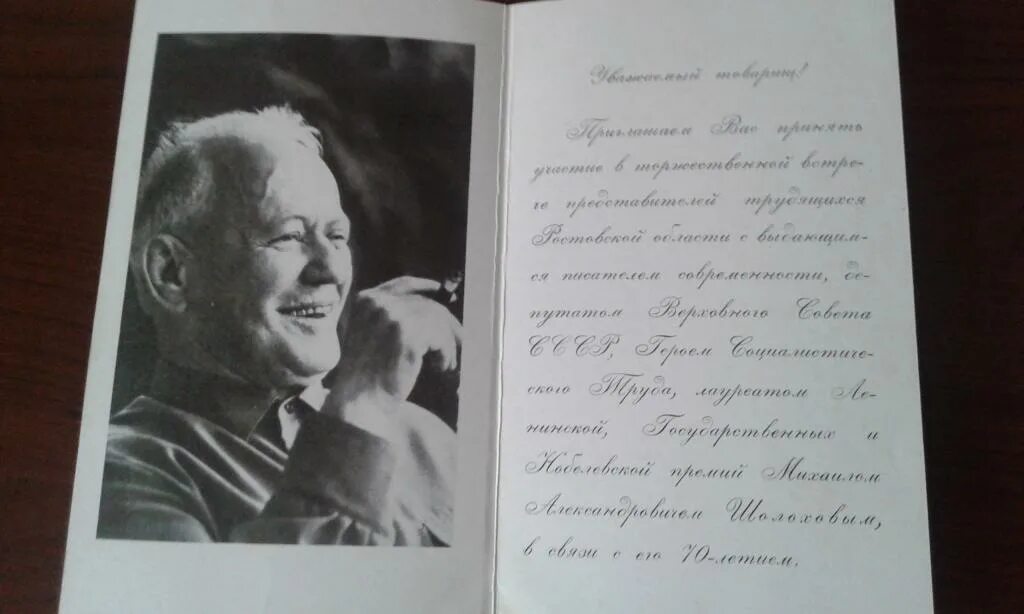 Уважаемый товарищ!
Приглашаем Вас принять
участие в торжественной встре-
че представителей трудящихся
Ростовской области с выдающим-
ся писателем современности, де-
путатом Верховного Совета
СССР, Героем Социалистиче-
ского Труда, лауреатом Ле-
нинской, Государственных и
Нобелевской премий Михаилом
Александровичем Шолоховым,
в связи с его 70-летием.